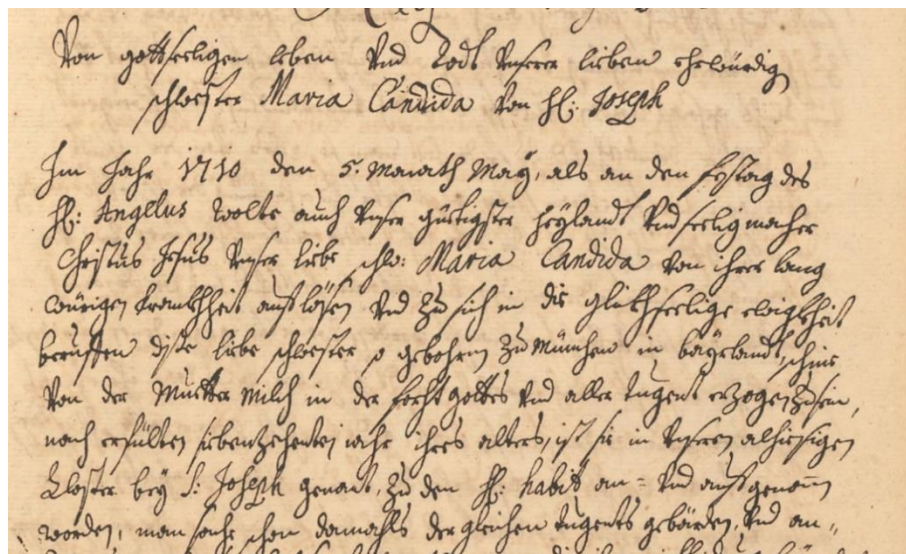 Von gottseeligen leben Vnd Todt Vnserer lieben ehrwürdig
schwester Maria Candida Von hl: Joseph
Im Jahr 1710 den 5. Monath May, als an den festag des
hl: Angelus wolte auch Vnser güettigster heylandt Vnd seeligmacher
Christus Jesus Vnser liebe schw: Maria Candida Von ihrer lang
würigen krankhheit auflösen Vnd zu sich in die glükhseelige ewigkheit
beruffen dise liebe schwester gebohren zu München in bayrlandt, schine
Von der Muetter Milch in der forcht gottes Vnd aller tugent erzogen zu sein,
nach erfülten sibenzehenten jahr ihres alters, ist sie in Vnseren alhiesigen
Closter bey S: Joseph genant, zu den hl: habit an= Vnd aufgenomen
worden, man sache schon damahls dergleichen tugents gebärden, Vnd an„